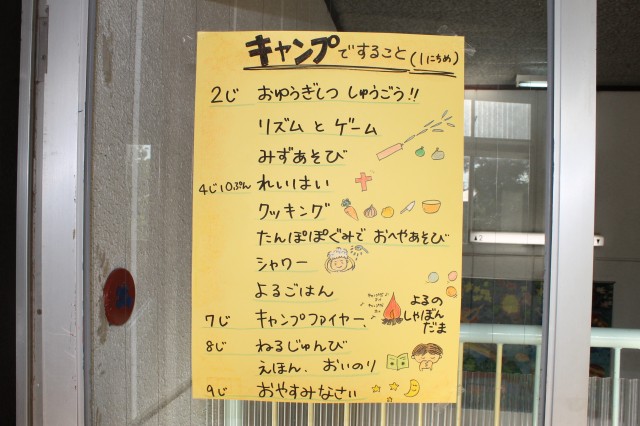 キャンプですること(1にちめ)
2じ おゆうぎしつ しゅうごう!!
リズム と ゲーム
みずあそび
4じ10ぷん れいはい
クッキング
たんぽぽぐみで おへやあそび
シャワー
よるごはん
7じ キャンプファイヤー、
よるの
しゃぼん
だま
8じ ねるじゅんび
えほん. おいのり
9じ おやすみなさい